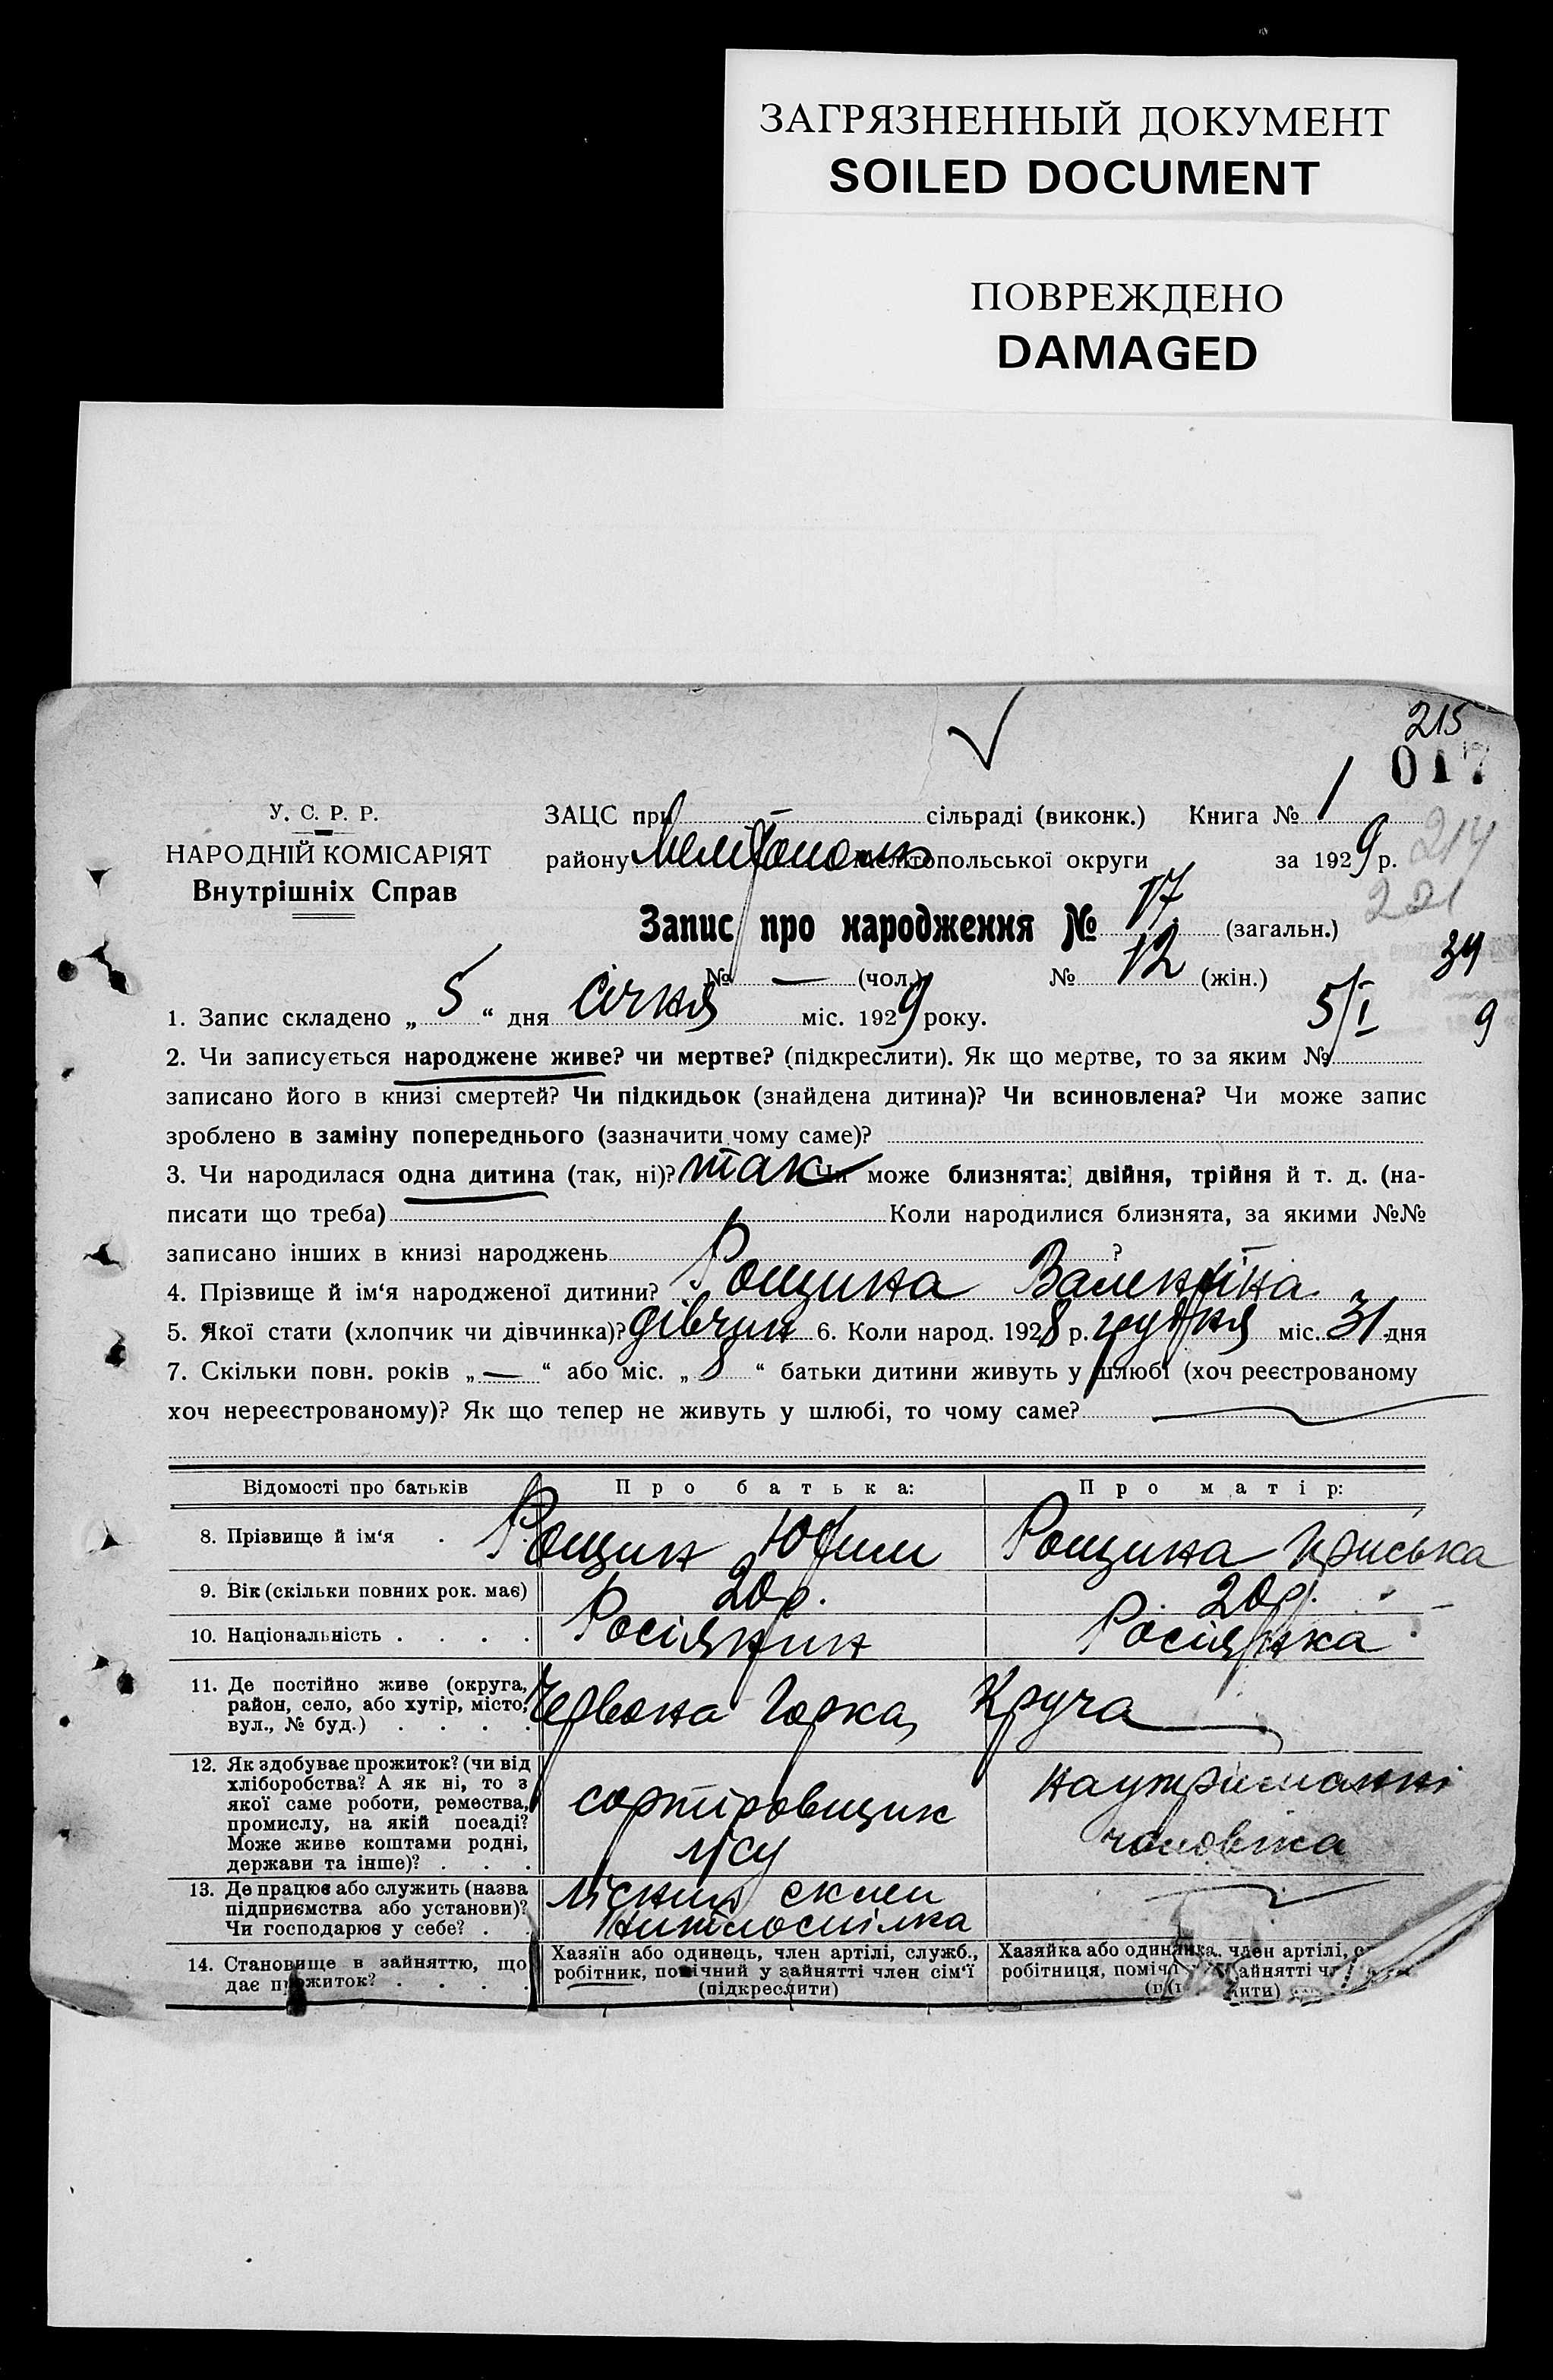 ЗАГРЯЗНЕННЫЙ ДОКУМЕНТ
SOILED DOCUMENT
ПОВРЕЖДЕНО
DAMAGED
215
017
У. С. Р. Р.
НАРОДНІЙ КОМІСАРІЯТ
Внутрішніх Справ
ЗАЦС при сільраді (виконк.) Книга № 1
району Мелітополь Мелітопольської округи за 1929 р.
214
221
Запис про народження № 17 (загальн.)
№ — (чол.) № 12 (жін.)
34
5/I
9
1. Запис складено „ 5 “ дня Січня міс. 1929 року.
2. Чи записується народжене живе? чи мертве? (підкреслити). Як що мертве, то за яким №
записано його в книзі смертей? Чи підкидьок (знайдена дитина)? Чи всиновлена? Чи може запис
зроблено в заміну попереднього (зазначити чому саме)?
3. Чи народилася одна дитина (так, ні)? так Чи може близнята: двійня, трійня й т. д. (на-
писати що треба) Коли народилися близнята, за якими №№
записано інших в книзі народжень ?
4. Прізвище й ім‘я народженої дитини? Рощина Валентіна
5. Якої стати (хлопчик чи дівчинка)? дівчин 6. Коли народ. 1928 р. грудня міс. 31 дня
7. Скільки повн. років „ — “ або міс. „ 8 “ батьки дитини живуть у шлюбі (хоч реєстрованому
хоч нереєстрованому)? Як що тепер не живуть у шлюбі, то чому саме?
Відомості про батьків Про батька: Про матір:
8. Прізвище й ім‘я . Рощин Юфим Рощина Приська
9. Вік (скільки повних рок. має) 20р. 20р.
10. Національність . . . . Росіянин Росіянка
11. Де постійно живе (округа,
район, село, або хутір, місто,
вул., № буд.) . . . .
Червона Горка, Круча
12. Як здобуває прожиток? (чи від
хліборобства? А як ні, то з
якої саме роботи, ремества,
промислу, на якій посаді?
Може живе коштами родні,
держави та інше)? . . .
сортіровщик
лісу
на утриманні
чоловіка
13. Де працює або служить (назва
підприємства або установи)?
Чи господарює у себе? . .
Лісний склад
14. Становище в зайняттю, що
дає прожиток? . . . .
Хазяїн або одинець, член артілі, служб.,
робітник, помічний у зайнятті член сім‘ї
(підкреслити)
Хазяйка або одиначка, член артілі,
робітниця,